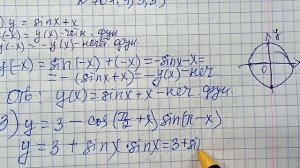 y = sinx + x
(-x) = y(x) - чётн. фун.
y(-x) = -y(x) - неч. фун.
y(-x) = sin(-x) + (-x) = -sinx - x =
= -(sinx + x) = -y(x) - неч.
Отв: y(x) = sinx + x - неч. фун.
3) y = 3 - cos(π/2 + x) sin(π - x)
y = 3 + sinx · sinx = 3 + si
y
0